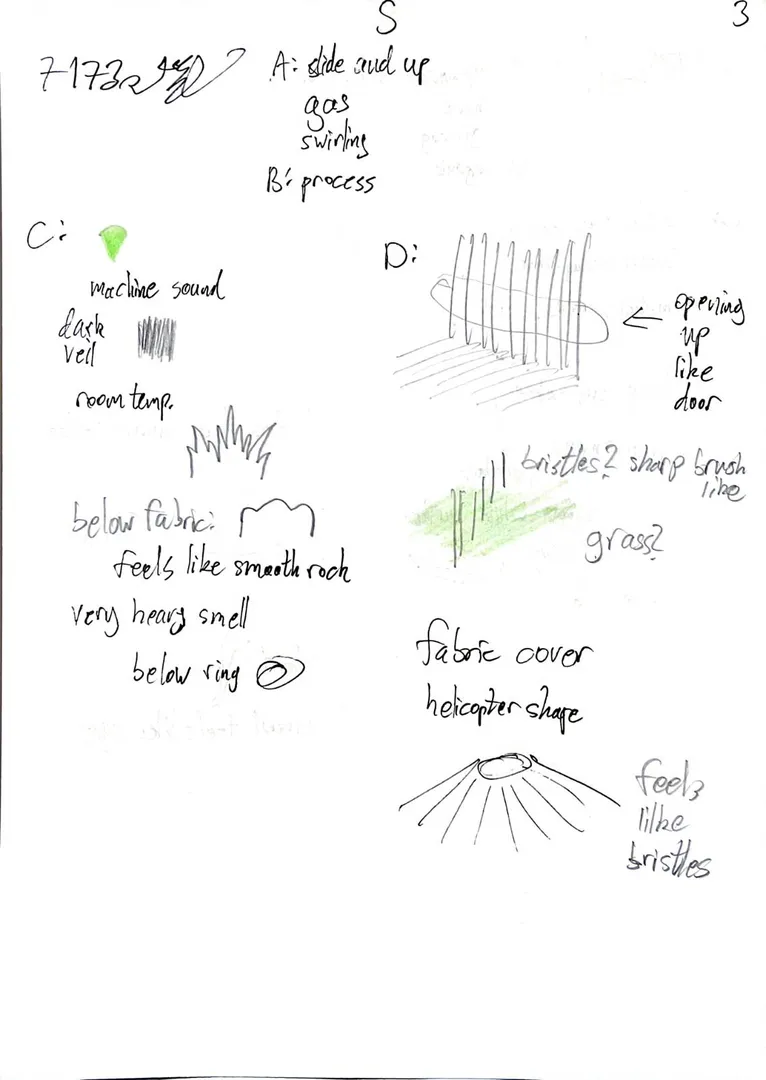 S
3
7173
A: slide and up
gas
swirling
B: process
C:
machine sound
dark
veil
room temp.
below fabric:
feels like smooth rock
very heavy smell
below ring
D:
opening
up
like
door
bristles? sharp brush
like
grass?
fabric cover
helicopter shape
feels
lilke
bristles